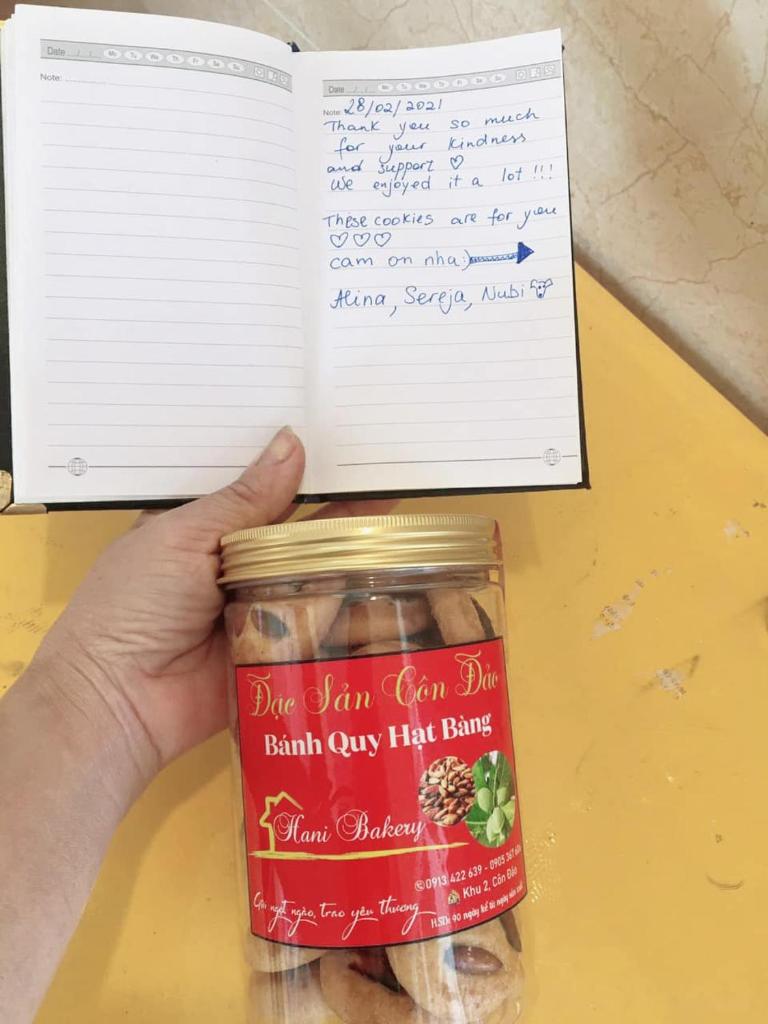 Date ... / ... / ... Mo Tu We Th Fr Sa Su
Note:
Date ... / ... / ... Mo Tu We Th Fr Sa Su
Note: 28/02/2021
Thank you so much
for your kindness
and support ♡
We enjoyed it a lot !!!
These cookies are for you
♡♡♡
cam on nha:)
Alina, Sereja, Nubi
Đặc Sản Côn Đảo
Bánh Quy Hạt Bàng
Hani Bakery
0913 422 639 - 0905 367
Khu 2, Côn Đảo
Gửi ngọt ngào, trao yêu thương
HSD: 90 ngày kể từ ngày sản xuất